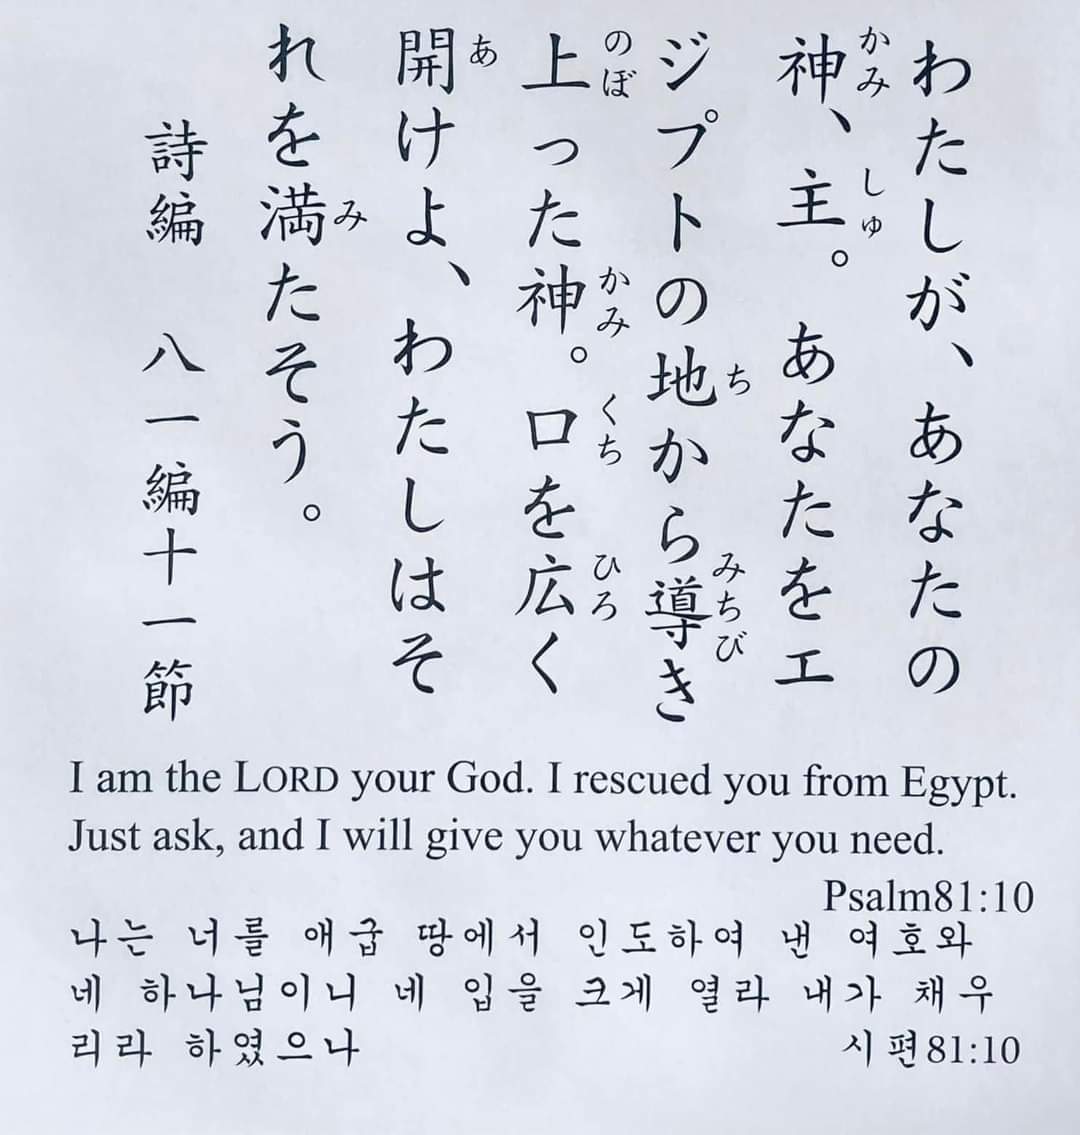 わたしが、あなたの
神、主。あなたをエ
ジプトの地から導き
上った神。口を広く
開けよ、わたしはそ
れを満たそう。
詩編 八一編十一節
かみ しゅ
ち みちび
のぼ かみ くち ひろ
あ
み
I am the LORD your God. I rescued you from Egypt.
Just ask, and I will give you whatever you need.
Psalm81:10
나는 너를 애굽 땅에서 인도하여 낸 여호와
네 하나님이니 네 입을 크게 열라 내가 채우
리라 하였으나 시편81:10